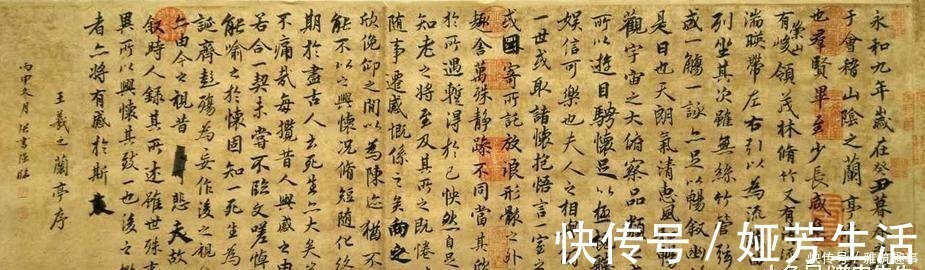 永和九年歲在癸丑暮春
于會稽山陰之蘭亭
也羣賢畢至少長咸
有崇山峻領茂林脩竹又有清
湍暎帶左右引以為流
列坐其次雖無絲竹管
盛一觴一詠亦足以暢敘幽
是日也天朗氣清惠風
觀宇宙之大俯察品類
所以遊目騁懷足以極
娛信可樂也夫人之相
一世或取諸懷抱悟言一室
或因寄所託放浪形骸之外
趣舍萬殊靜躁不同當其欣
於所遇暫得於己怏然自足
知老之將至及其所之既惓
隨事遷感慨係之矣向之
欣俛仰之間以為陳迹猶不
能不以之興懷況脩短隨化終
期於盡古人云死生亦大矣
不痛哉每攬昔人興感之由
若合一契未嘗不臨文嗟悼
能喻之於懷固知一死生為
誕齊彭殤為妄作後之視
亦由今之視昔悲夫故
敘時人錄其所述雖世殊事
異所以興懷其致一也後之
者亦將有感於斯文
王羲之蘭亭序
丙申冬月
快传号/娅芳生活
快传号/雅筑趣事